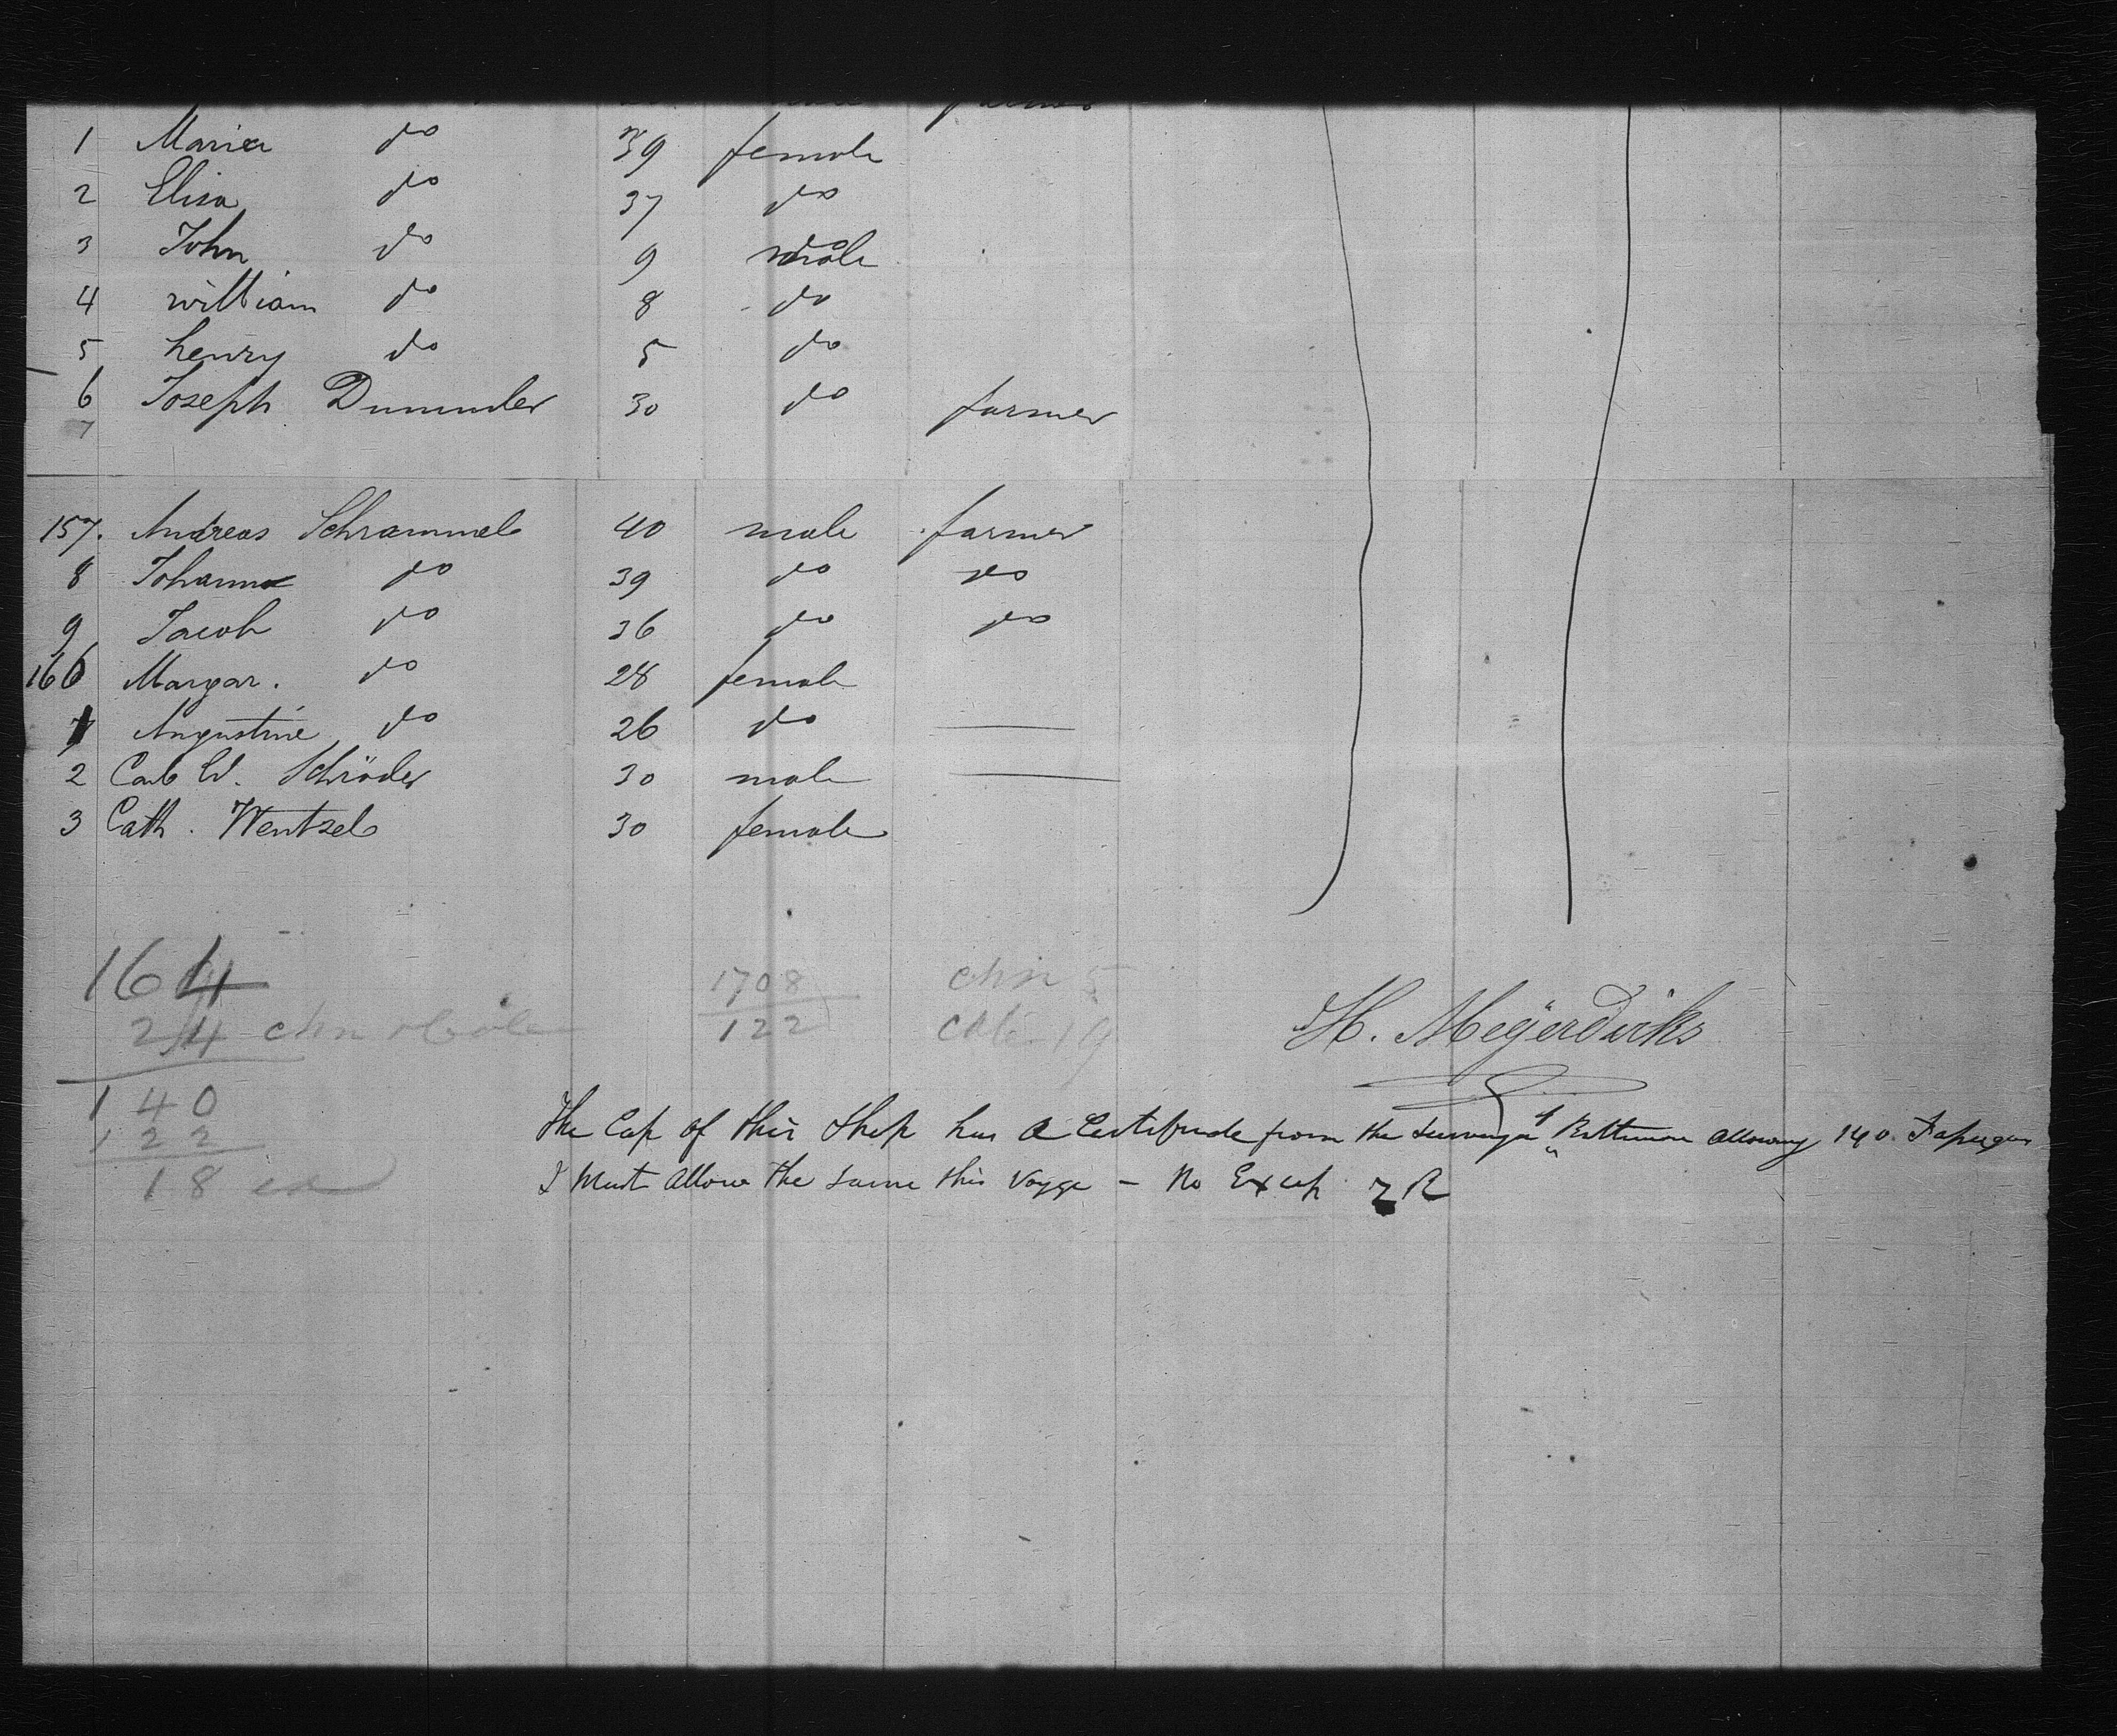 1 Maria do 39 female
2 Elisa do 37 do
3 John do 9 male
4 william do 8 do
5 henry do 5 do
6 Joseph Dummler 30 do farmer
7
157. Andreas Schrammel 40 male farmer
8 Johann do 39 do do
9 Jacob do 36 do do
160 Margar. do 28 female
1 Augustine do 26 do
2 Carl W. Schröder 30 male
3 Cath. Wentzel 30 female
164 1708 chn 5
24 chn 122 19
H. Meyerdirks
140
122
18 ex
The Cap of this Ship has a Certificate from the Surveyor of Baltimore allowing 140
I Must allow the same this Voyge - No Excep